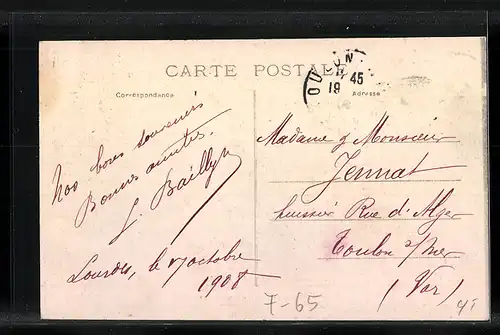 CARTE POSTALE
Correspondance
Adresse
TOULON
19 45
Nos bons souvenirs
Bonnes amitiés.
J. Bailly
Lourdes, le 7 octobre
1908
Madame & Monsieur
Jennat
huissier Rue d'Alger
Toulon s/mer
(Var)
7-65